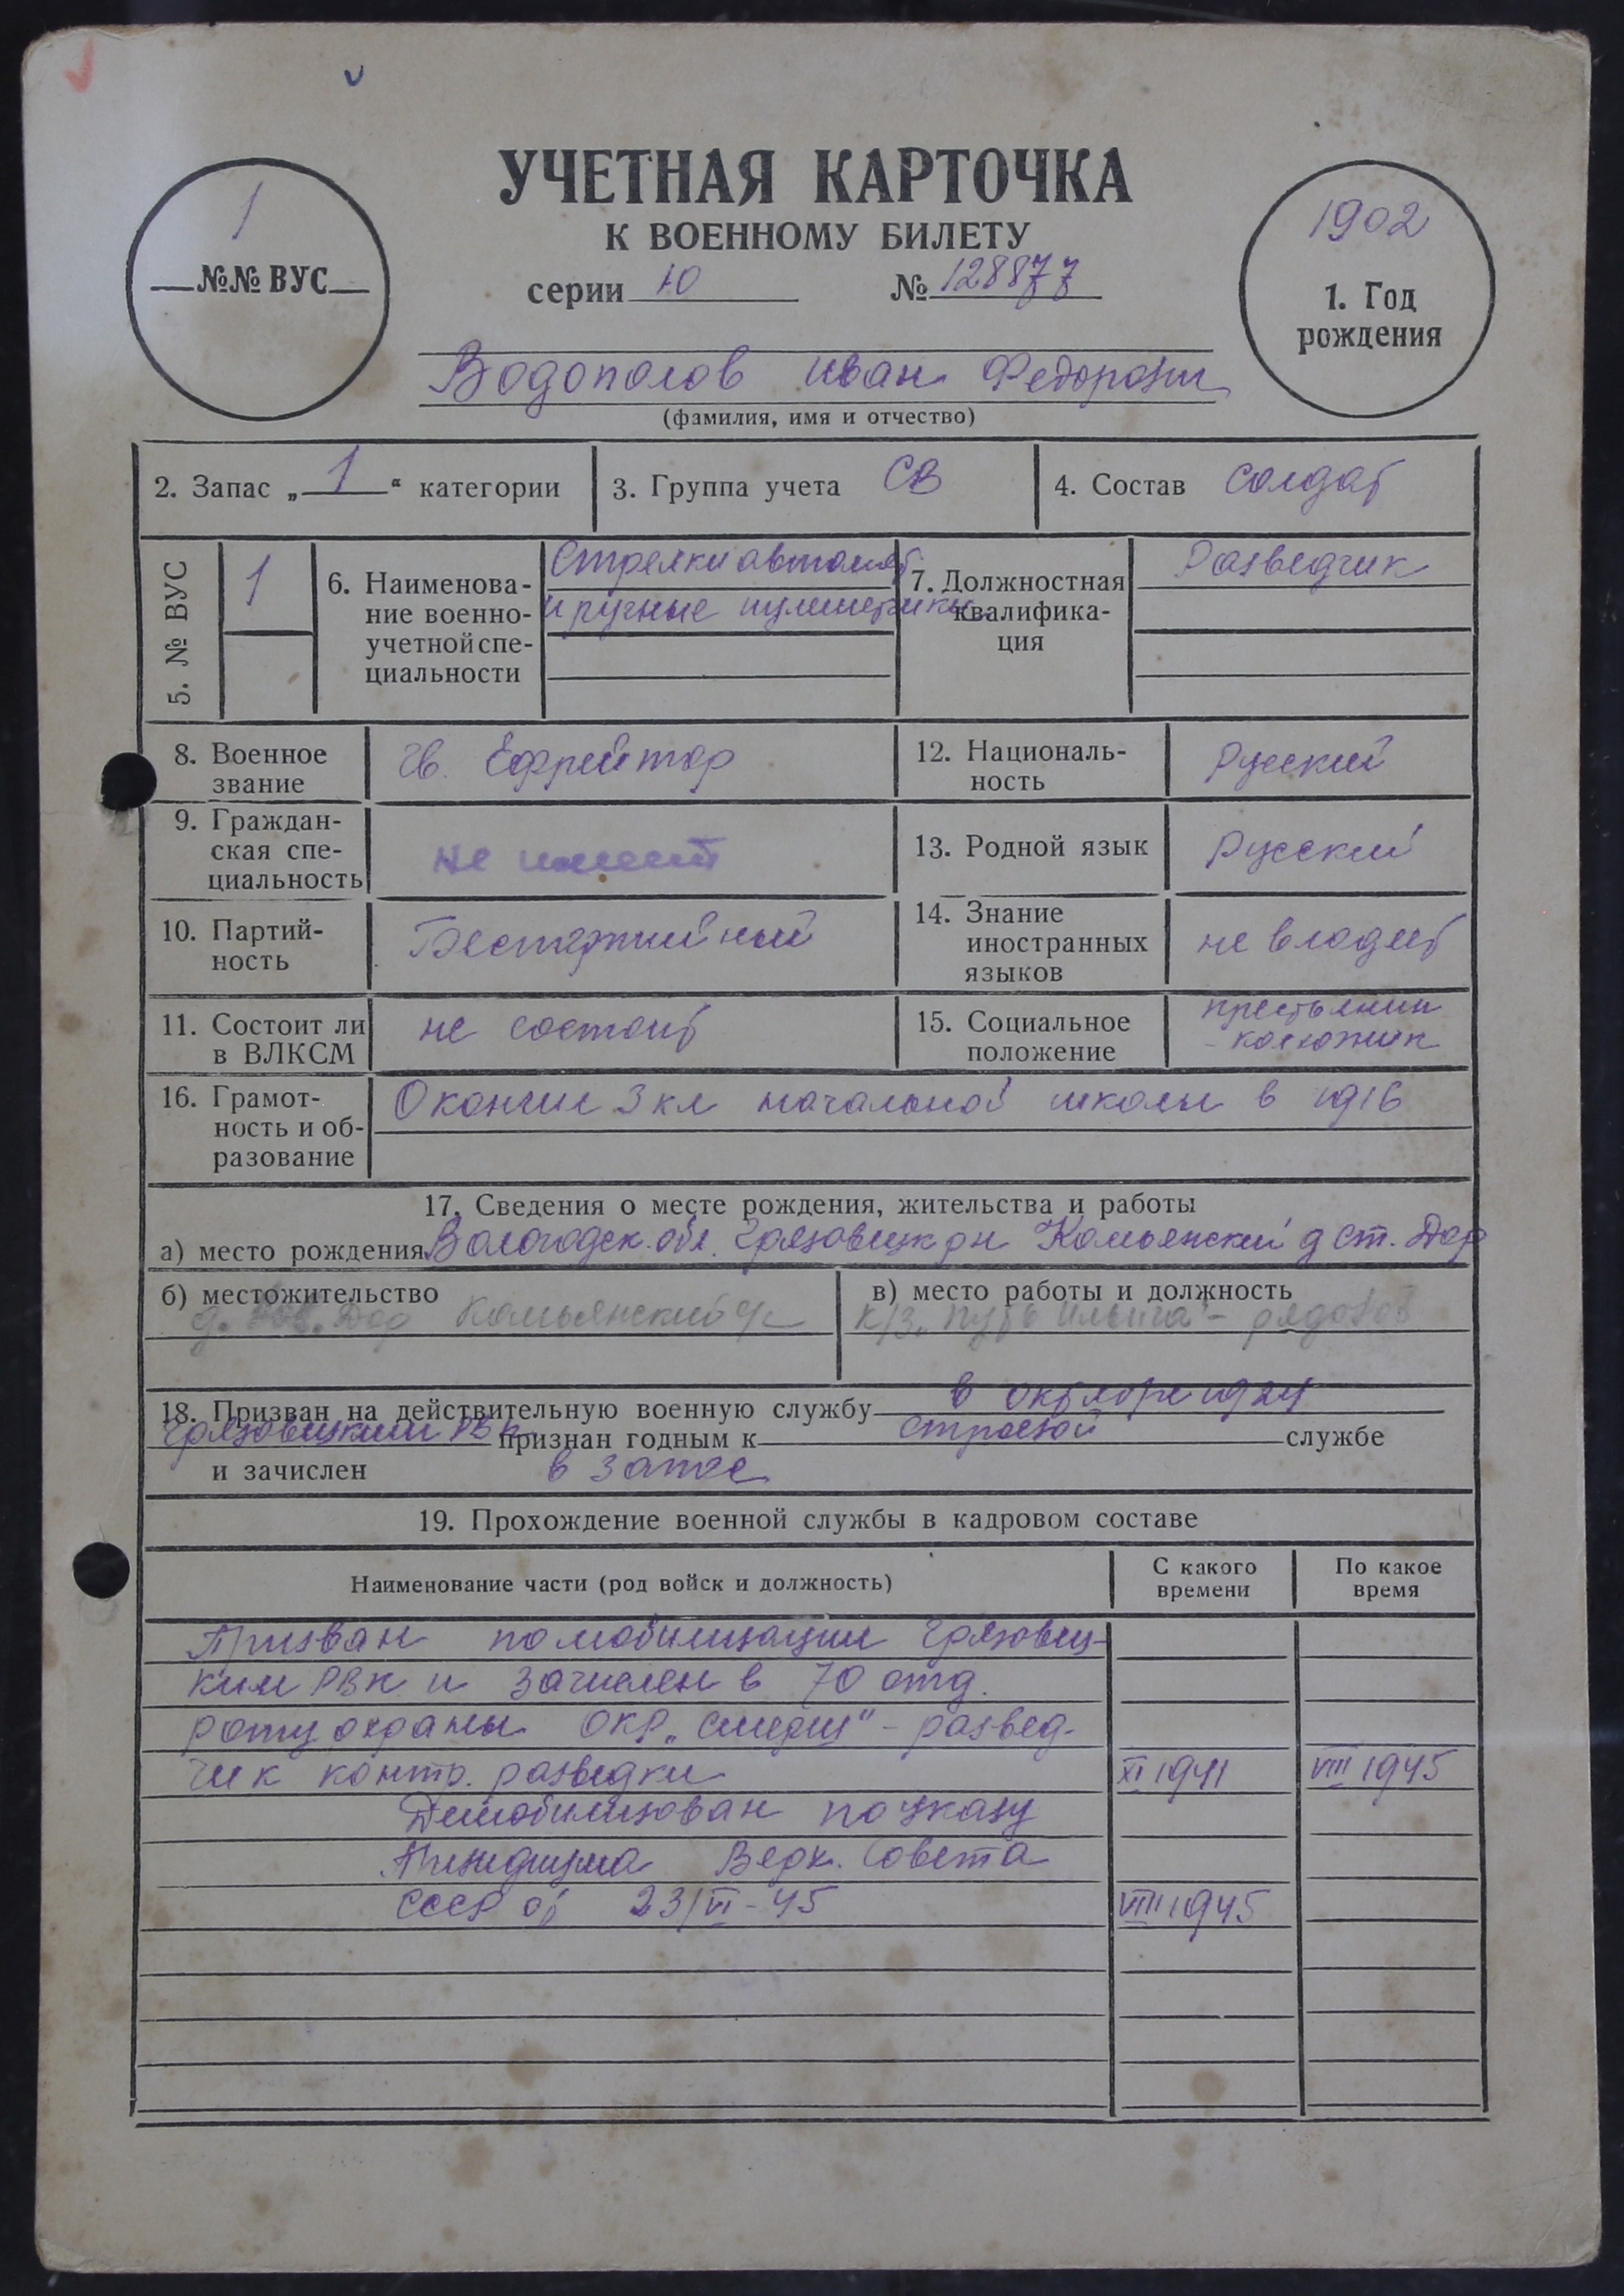 УЧЕТНАЯ КАРТОЧКА
К ВОЕННОМУ БИЛЕТУ
серии Ю № 128877
1
№№ ВУС
1902
1. Год
рождения
Водополов Иван Федорович
(фамилия, имя и отчество)
2. Запас „ 1 “ категории
3. Группа учета СВ
4. Состав солдат
5. № ВУС
1
6. Наименова-
ние военно-
учетной спе-
циальности
Стрелки автомат
и ручные пулеметчики
7. Должностная
квалифика-
ция
Разведчик
8. Военное
звание
гв. Ефрейтор
12. Националь-
ность
Русский
9. Граждан-
ская спе-
циальность
не имеет
13. Родной язык
Русский
10. Партий-
ность
Беспартийный
14. Знание
иностранных
языков
не владеет
11. Состоит ли
в ВЛКСМ
не состоит
15. Социальное
положение
крестьянин
- колхозник
16. Грамот-
ность и об-
разование
Окончил 3 кл начальной школы в 1916
17. Сведения о месте рождения, жительства и работы
а) место рождения Вологодск. обл. Грязовецк рн Комьянский д Ст. Дор
б) местожительство
д. Дор Комьянский
в) место работы и должность
к/з „Путь Ильича" - рядовой
18. Призван на действительную военную службу в октябре 1924
Грязовецким РВК признан годным к строевой службе
и зачислен в запас
19. Прохождение военной службы в кадровом составе
Наименование части (род войск и должность)
С какого
времени
По какое
время
Призван по мобилизации Грязовец-
ким РВК и зачислен в 70 отд.
роту охраны ОКР „Смерш" - развед-
чик контр. разведки XI 1941 VIII 1945
Демобилизован по указу
Президиума Верх. Совета
СССР от 23/VI-45 VIII 1945